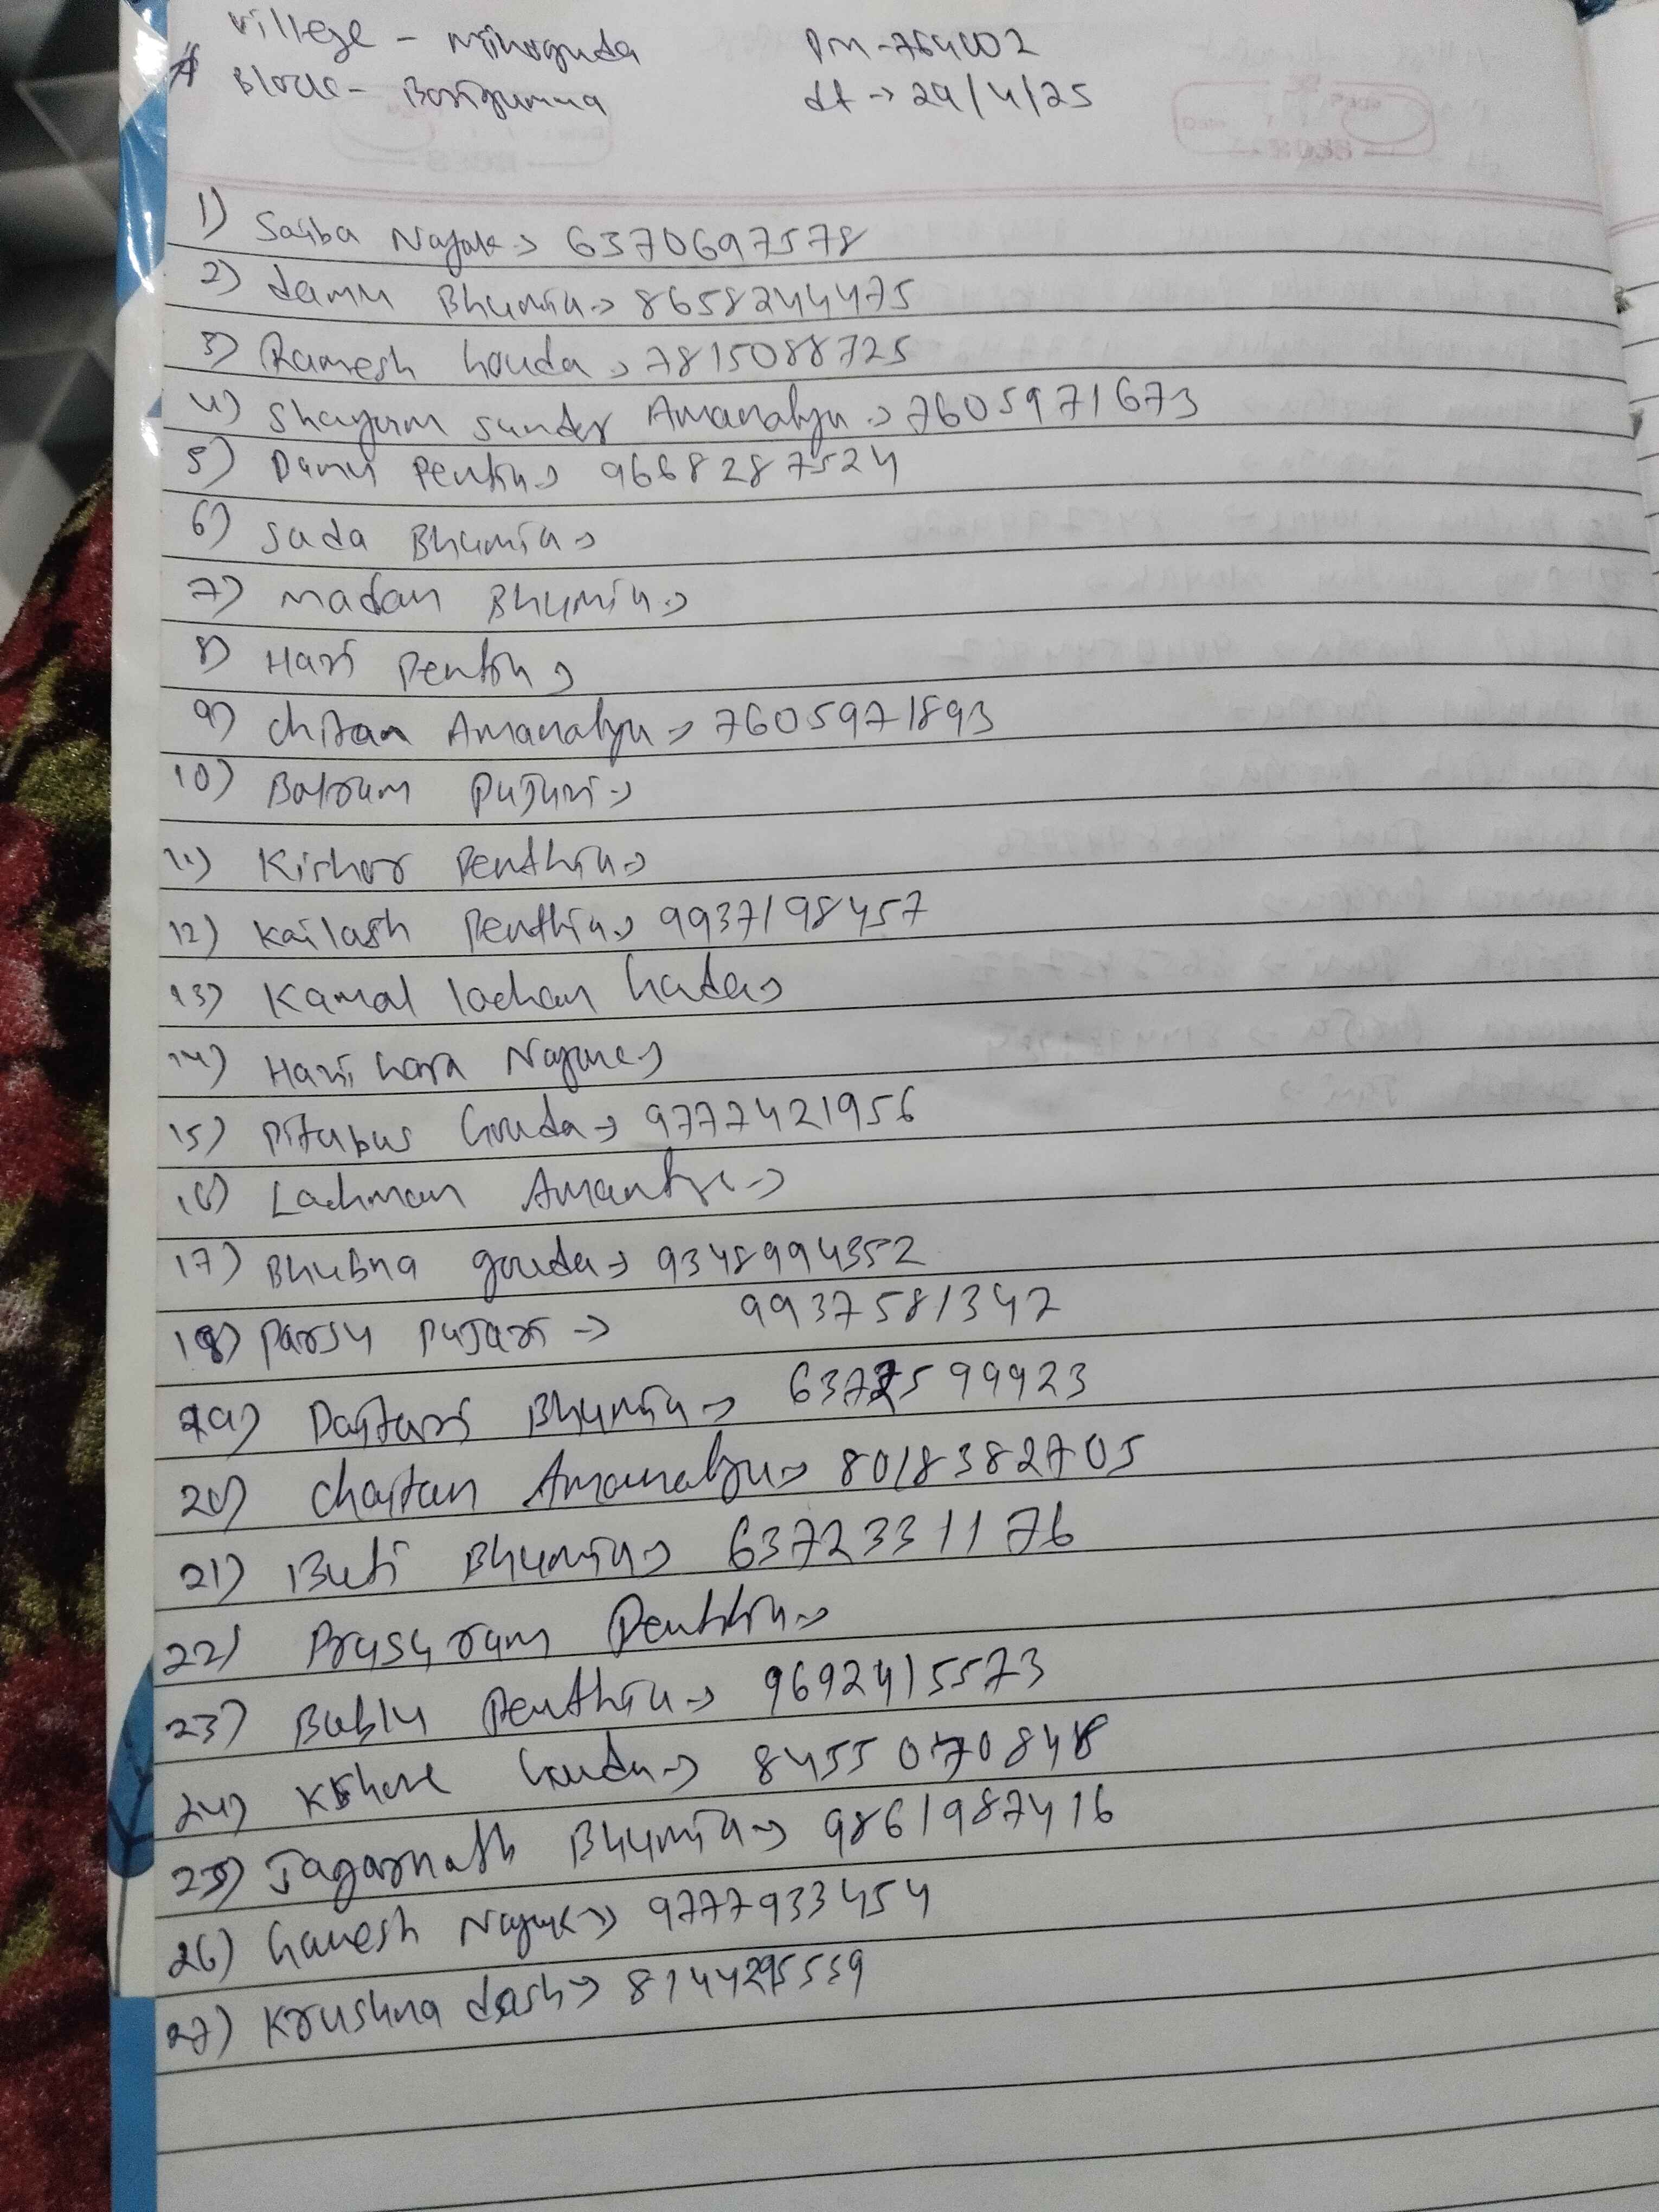 Village - Mihoguda PM - 764002
Block - Borigumma dt → 29/4/25
1) Saiba Nayak → 6370697578
2) damu Bhumia → 8658244475
3) Ramesh Gouda → 7815088725
4) Shayam Sunder Amanatya → 7605971673
5) Damu Pentia → 9668287524
6) Sada Bhumia →
7) Madan Bhumia →
8) Hari Pentia →
9) Chitan Amanatya → 7605971893
10) Balram Pujari →
11) Kishor Penthia →
12) Kailash Penthia → 9937198457
13) Kamal lochan Gada →
14) Hari hara Nayak →
15) Pitabus Gouda → 9777421956
16) Lachman Amantya →
17) Bhubna gouda → 9348994352
18) Parsu Pujari → 9937581342
19) Daitari Bhumia → 6372599923
20) Chaitan Amanatya → 8018382705
21) Buti Bhumia → 6372331176
22) Prasuram Penthia →
23) Bablu Penthia → 9692415573
24) Kishore Gouda → 8455070848
25) Jagarnath Bhumia → 9861987416
26) Ganesh Nayak → 9777933454
27) Krushna dash → 8144295559